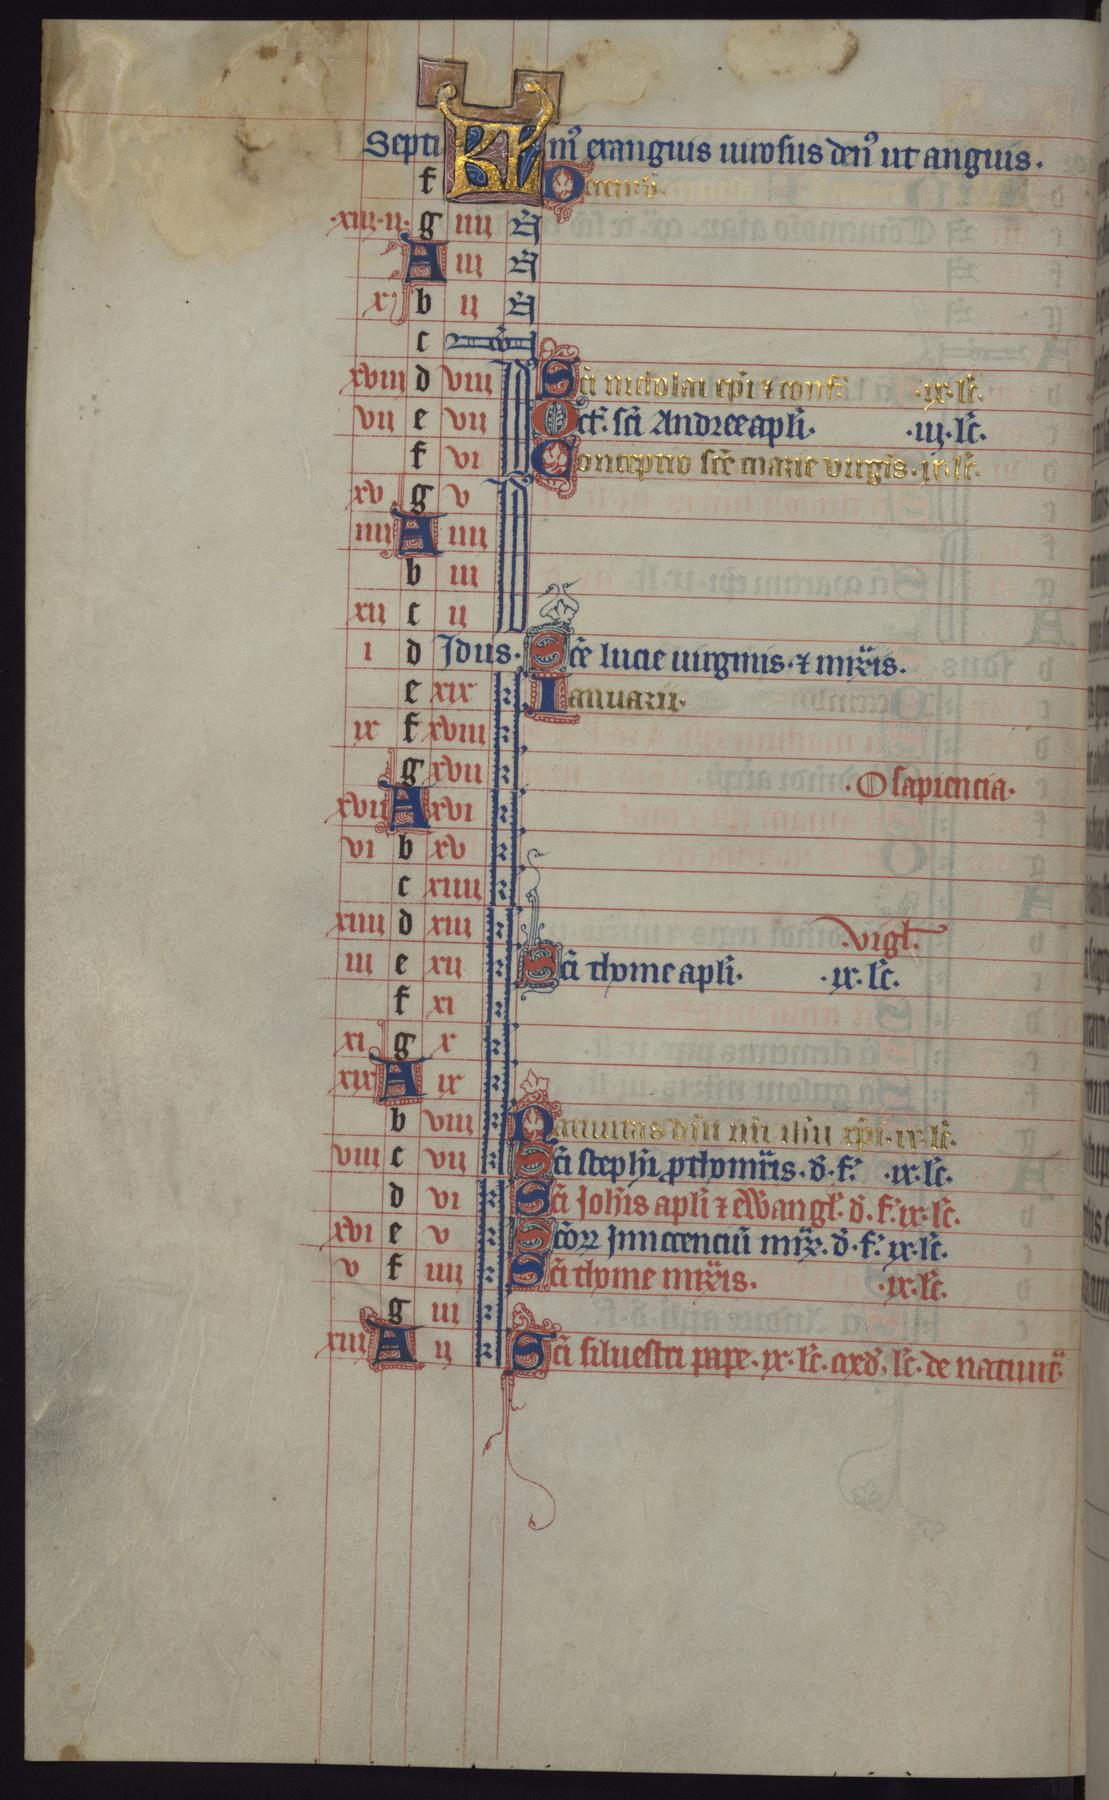 Septi KL nꝰ exanguis uirosus denꝰ ut anguis.
f Decemb̄.
.xiii.ii. g iiii N̄
A iii N̄
x b ii N̄
c Nō
xviii d viii Sc̄i nicholai ep̄i ⁊ conf. .ix.lc̄.
vii e vii Oct. sc̄i Andree apl̄i. .iii.lc̄.
f vi Conceptio sc̄e marie virgīs. ix.lc̄.
xv g v
iiii A iiii
b iii
xii c ii
i d Idus. Sc̄e lucie uirginis. ⁊ mr̄is.
e xix k Ianuarii.
ix f xviii k
g xvii k .O sapiencia.
xvii A xvi k
vi b xv k
c xiiii k
xiiii d xiii k .vigl̄.
iii e xii k Sc̄i thome apl̄i. .ix.lc̄.
f xi k
xi g x k
xix A ix k
b viii k Natiuitas dn̄i nr̄i ihū xp̄i. ix.lc̄.
viii c vii k Sc̄i steph̄i ꝓthomr̄is. d̄. f. .ix.lc̄.
d vi k Sc̄i Joh̄is apl̄i ⁊ ewangl̄. d̄. f. ix.lc̄.
xvi e v k Sc̄oꝝ Innocenciū mr̄ꝝ. d̄. f. ix.lc̄.
v f iiii k Sc̄i thome mr̄is. .ix.lc̄.
g iii k
xiii A ii k Sc̄i siluestri pape. ix. lc̄. med̄. lc̄. de natiuit̄